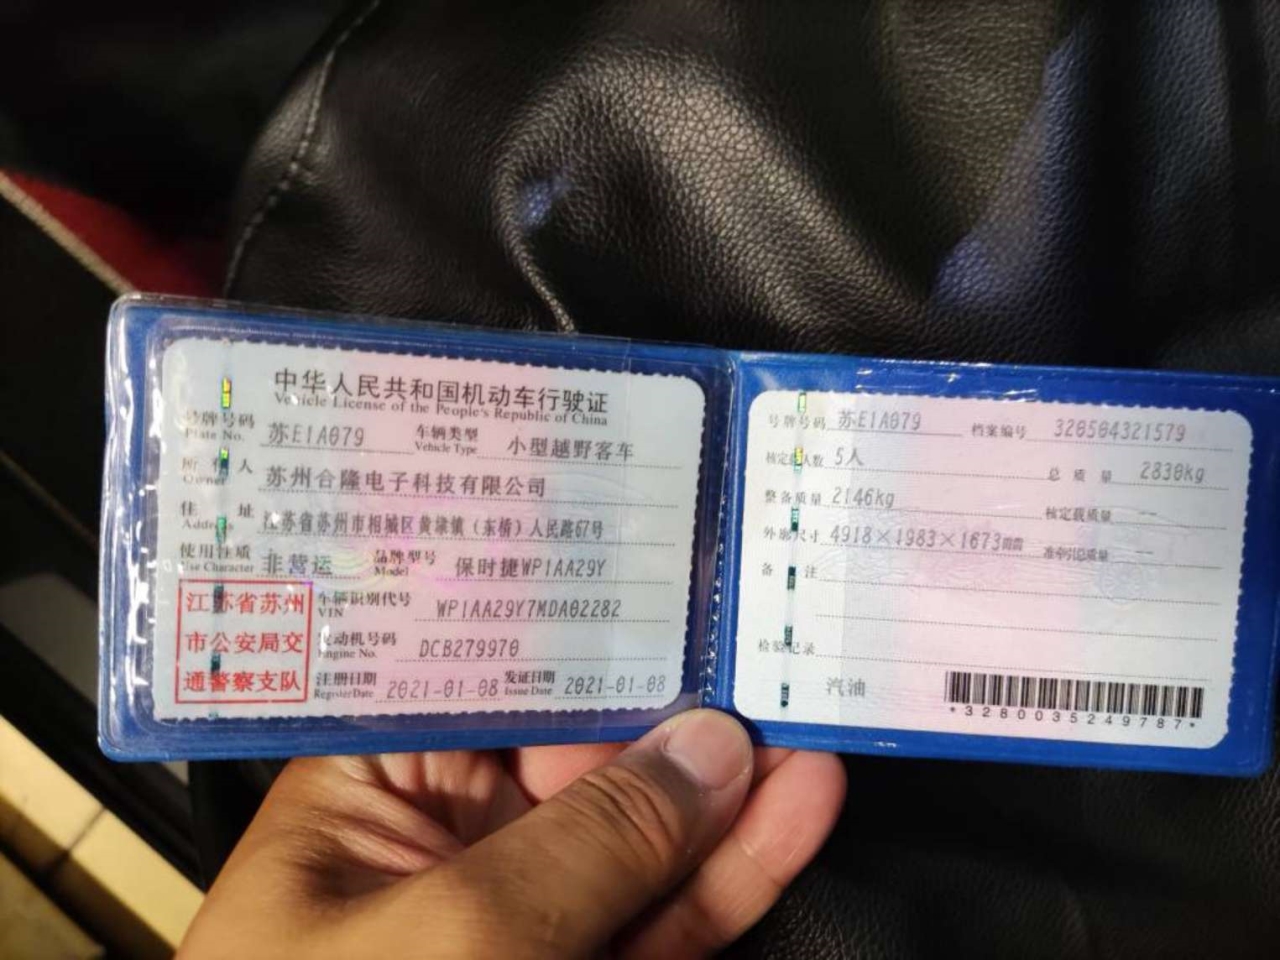 中华人民共和国机动车行驶证
Vehicle License of the People's Republic of China
号牌号码 苏E1A079 车辆类型 小型越野客车
Plate No. Vehicle Type
所有人 苏州合隆电子科技有限公司
Owner
住址 江苏省苏州市相城区黄埭镇（东桥）人民路67号
Address
使用性质 非营运 品牌型号 保时捷WP1AA29Y
Use Character Model
江苏省苏州
市公安局交
通警察支队
车辆识别代号 WP1AA29Y7MDA02282
VIN
发动机号码 DCB279970
Engine No.
注册日期 2021-01-08 发证日期 2021-01-08
Register Date Issue Date
号牌号码 苏E1A079 档案编号 320504321579
核定载人数 5人 总质量 2830kg
整备质量 2146kg 核定载质量 --
外廓尺寸 4918×1983×1673mm 准牵引总质量 --
备注
检验记录
汽油
*3280035249787*